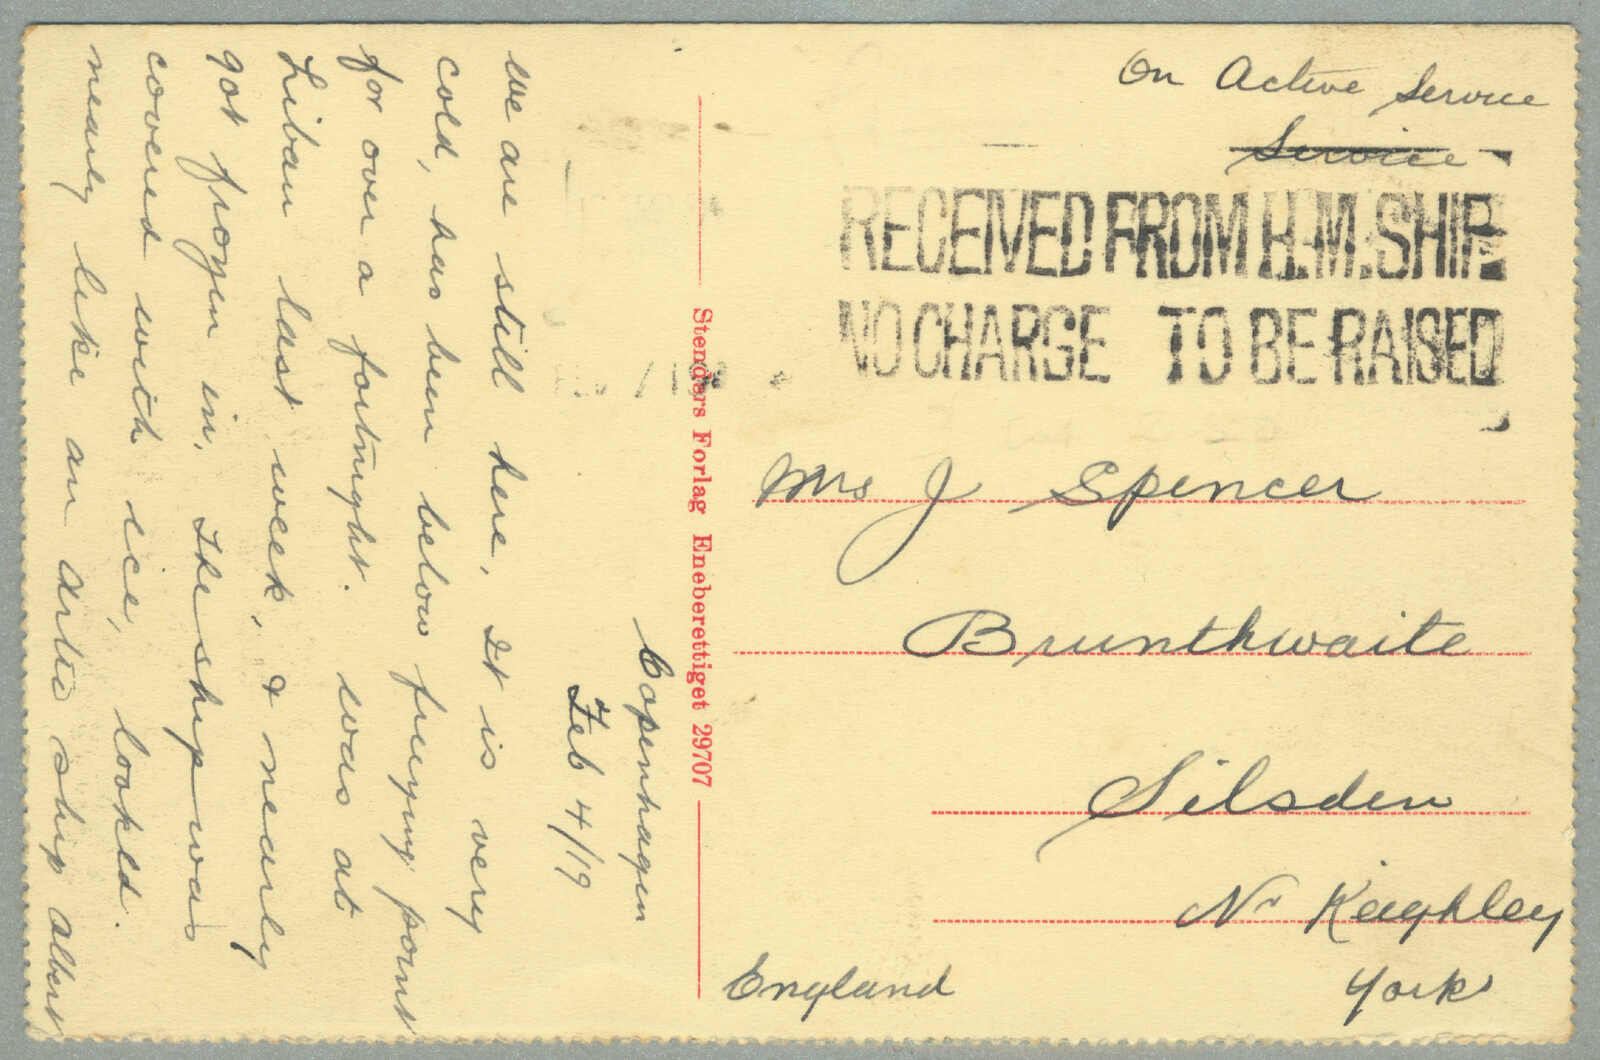 Copenhagen
Feb 4/19
We are still here, It is very
cold, has been below freezing point
for over a fortnight. was at
Libau last week, & nearly
got frozen in. The ship was
covered with ice, looked.
nearly like an artic ship Albert
Stenders Forlag Eneberettiget 29707
On Active Service
Service
RECEIVED FROM H.M. SHIP
NO CHARGE TO BE RAISED
Mrs J Spencer
Brunthwaite
Silsden
Nr Keighley
England York